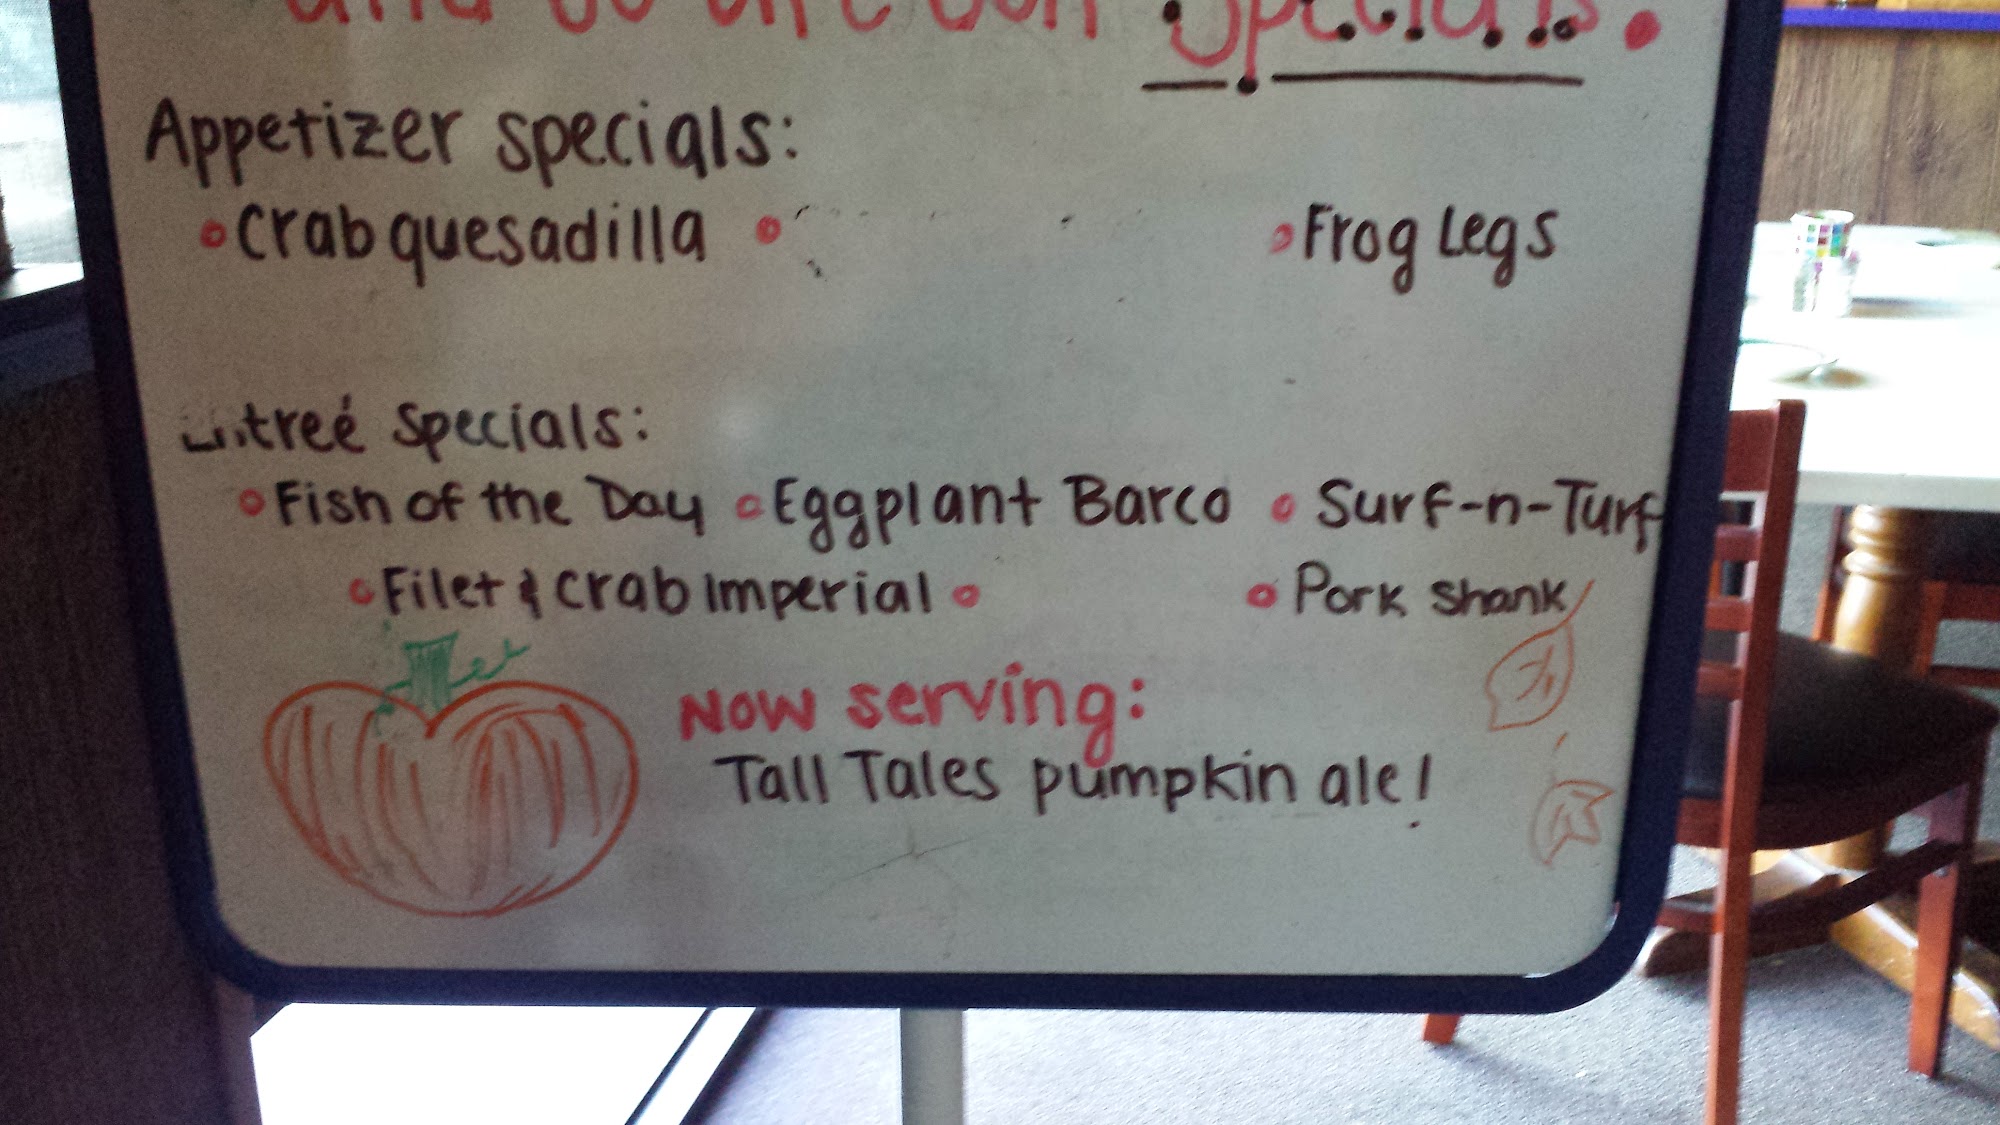 and so are our Specials.
Appetizer specials:
Crab quesadilla Frog Legs
Entreé Specials:
Fish of the Day Eggplant Barco Surf-n-Turf
Filet & crab Imperial Pork Shank
Now serving:
Tall Tales pumpkin ale!